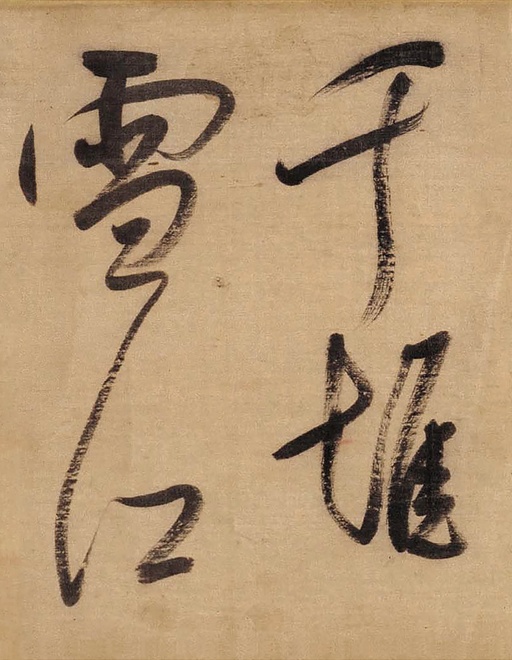 千堆
雪江